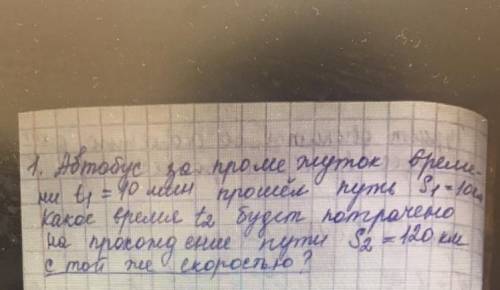 1. Автобус за промежуток време-
ни t₁ = 10 мин прошёл путь S₁ =
Какое время t₂ будет потрачено
на прохождение пути S₂ = 120 км
с той же скоростью?